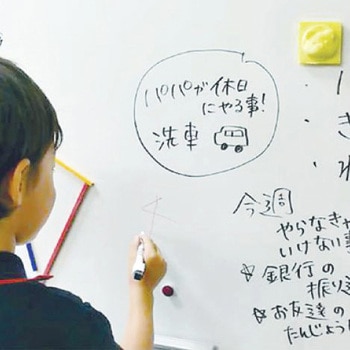 パパが休日
にやる事!
洗車
今週
やらなきゃ
いけない事
☆銀行の
振り込
☆お友達の
たんじょう